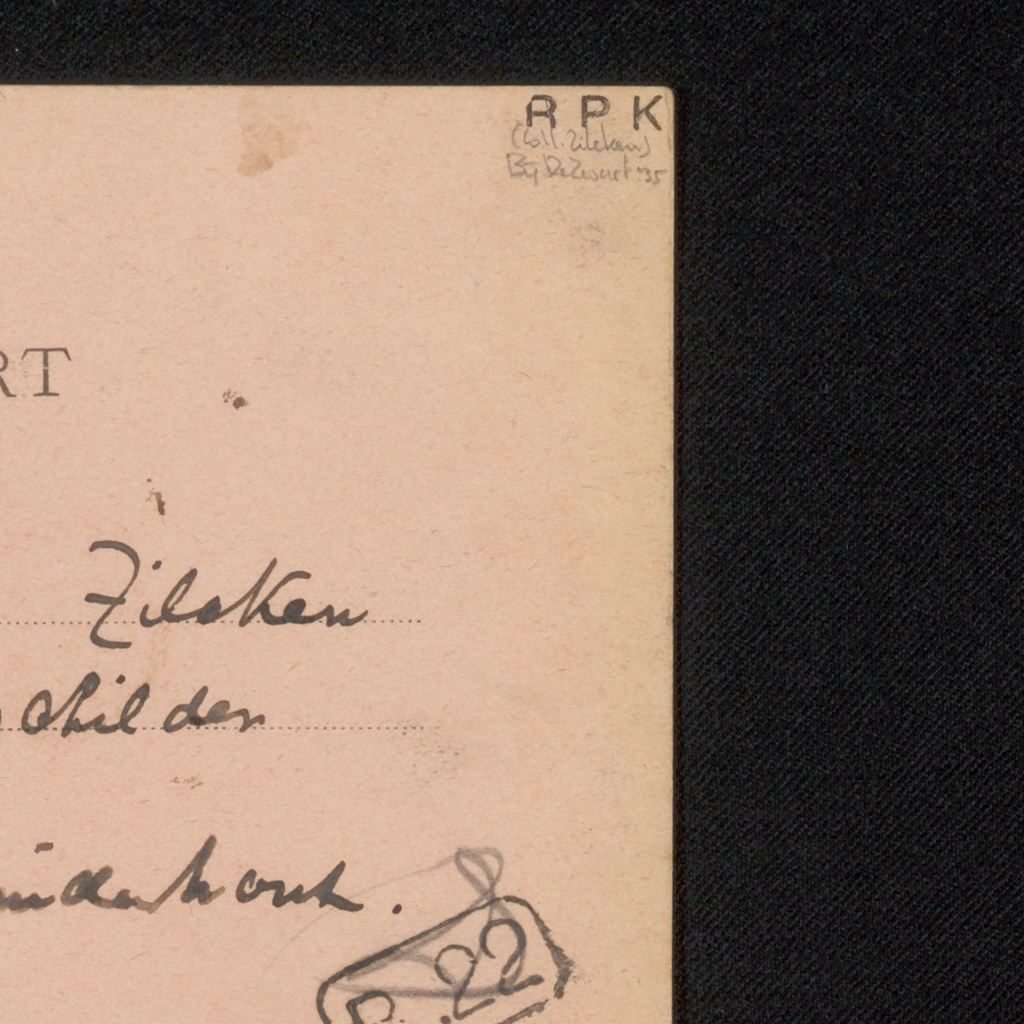 RPK
(Coll. Zilcken)
Bij De Zwart '35
RT
Zilcken
childer
nderhout.
22